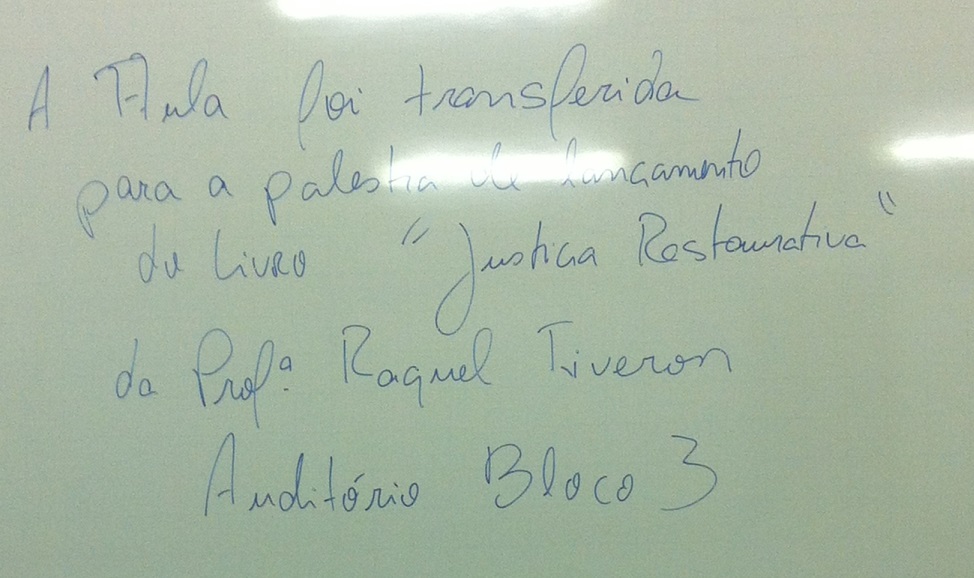 A Aula foi transferida
para a palestra de lançamento
do livro "Justiça Restaurativa"
da Profª. Raquel Tiveron
Auditório Bloco 3